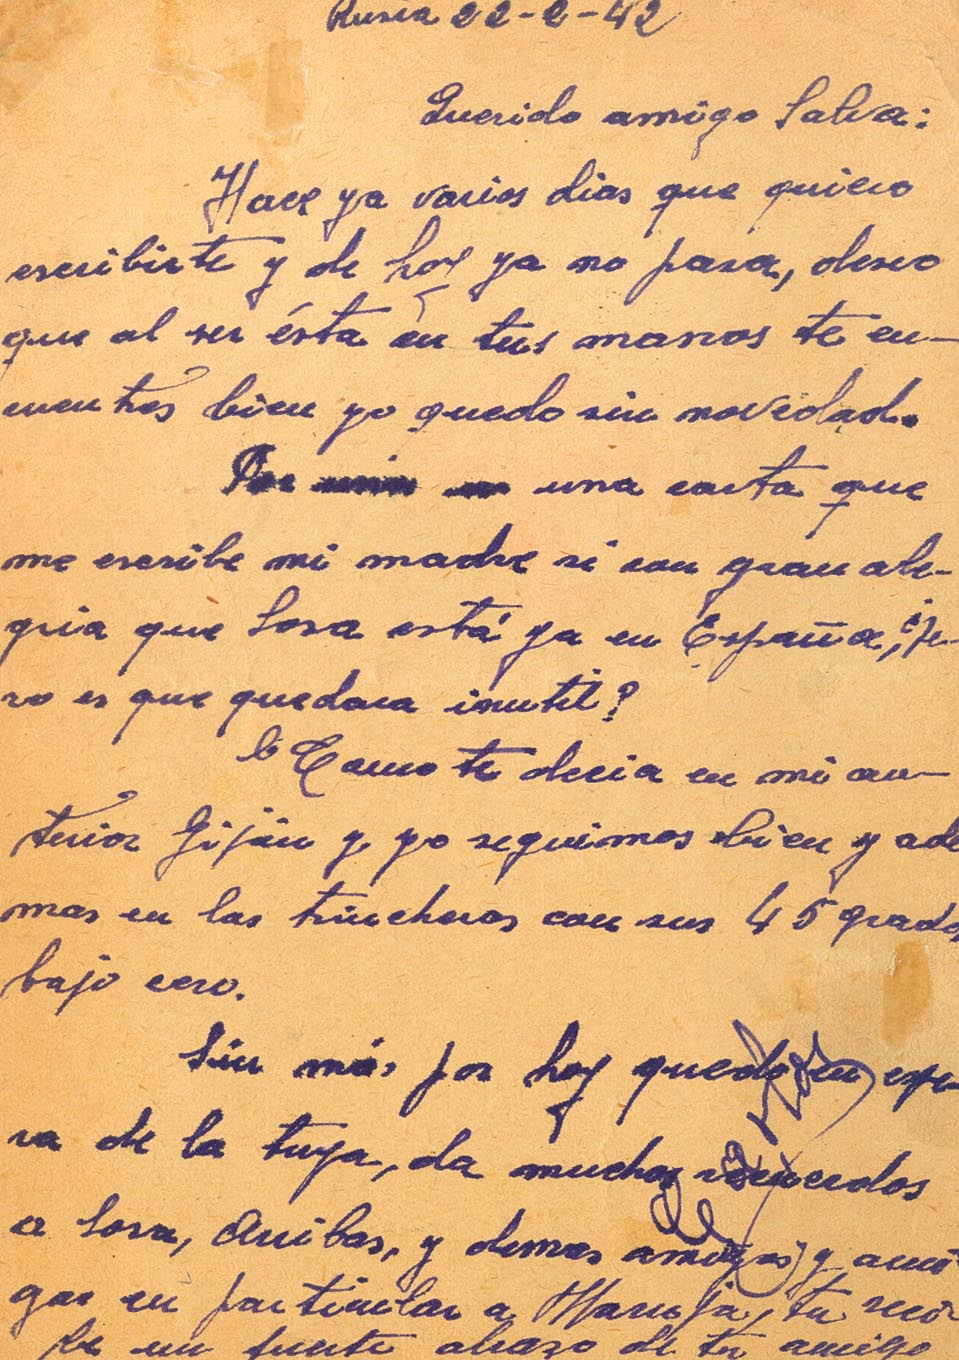 Rusia 22-2-42
Querido amigo Salva:
Hace ya varios dias que quiero
escribirte y de hoy ya no pasa, deseo
que al ser ésta en tus manos te en-
cuentres bien yo quedo sin novedad.
Por una carta que
me escribe mi madre sé con gran ale-
gria que Sosa está ya en España, ¿pe-
ro es que quedara inutil?
Como te decia en mi an-
terior Gijón y yo seguimos bien y ade
mas en las trincheras con sus 45 grados
bajo cero.
Sin más por hoy quedo en espe-
ra de la tuya, da muchos recuerdos
a Sosa, Arribas, y demas amigos y ami
gas en particular a Maruja, tu reci-
be un fuerte abrazo de tu amigo